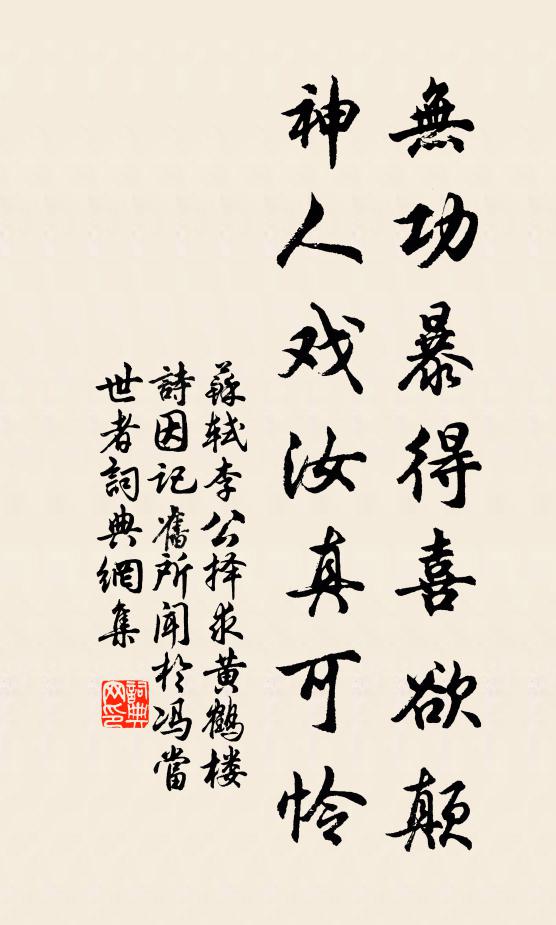 無功暴得喜欲颠
神人戏汝真可怜
蘇轼李公择求黄鹤楼
詩因记舊所闻於冯當
世者詞典網集
詞典网印